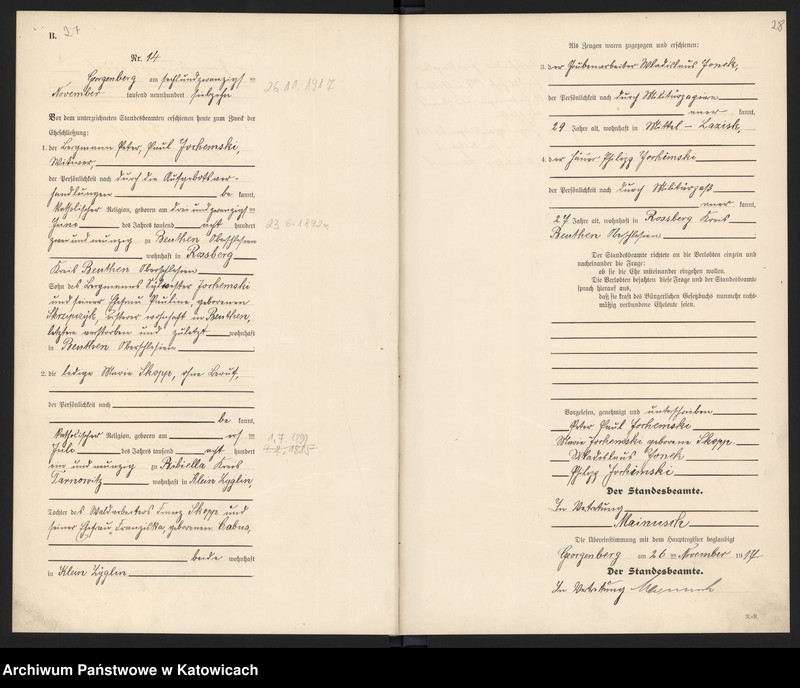 B.
27
Nr. 14
Georgenberg am sechsundzwanzigsten
November tausend neunhundert siebzehn
26.11.1917
Vor dem unterzeichneten Standesbeamten erschienen heute zum Zweck der
Eheschließung:
1. der Bergmann Peter, Paul Jochemski,
Witwer,
der Persönlichkeit nach durch die Aufgebotsver-
handlungen be kannt,
katholischer Religion, geboren am dreiundzwanzigsten
Juni des Jahres tausend acht hundert
zwei und neunzig zu Beuthen Oberschlesien
wohnhaft in Rossberg
Kreis Beuthen Oberschlesien
Sohn des Bergmanns Jochemski
und seiner Ehefrau Pauline, geborenen
Skrzipczyk, ersterer wohnhaft in Beuthen,
letztere verstorben und zuletzt wohnhaft
in Beuthen Oberschlesien
2. die ledige Marie Skopp, ohne Beruf,
der Persönlichkeit nach
be kannt,
katholischer Religion, geboren am ersten
Juli des Jahres tausend acht hundert
ein und neunzig zu Bibiella Kreis
Tarnowitz wohnhaft in Klein Zyglin,
Tochter des Waldarbeiters Franz Skopp und
seiner Ehefrau Franziska, geborenen Cabus,
beide wohnhaft
in Klein Zyglin
28
Als Zeugen waren zugezogen und erschienen:
3. der Grubenarbeiter Wladislaus Jonck,
der Persönlichkeit nach durch Militärpapiere
kannt,
29 Jahre alt, wohnhaft in Mittel-Lazisk,
4. der Häuer Philipp Jochimski
der Persönlichkeit nach durch Militärpaß
kannt,
27 Jahre alt, wohnhaft in Rossberg Kreis
Beuthen Oberschlesien
Der Standesbeamte richtete an die Verlobten einzeln und
nacheinander die Frage:
ob sie die Ehe miteinander eingehen wollen.
Die Verlobten bejahten diese Frage und der Standesbeamte
sprach hierauf aus,
daß sie kraft des Bürgerlichen Gesetzbuchs nunmehr recht-
mäßig verbundene Eheleute seien.
Vorgelesen, genehmigt und unterschrieben
Peter Paul Jochemski
Marie Jochemski geborene Skopp.
Wladislaus Jonck
Philipp Jochimski
Der Standesbeamte.
In Vertretung
Mainusch
Die Übereinstimmung mit dem Hauptregister beglaubigt
Georgenberg am 26 ten November 1917
Der Standesbeamte.
In Vertretung Mainusch
Archiwum Państwowe w Katowicach